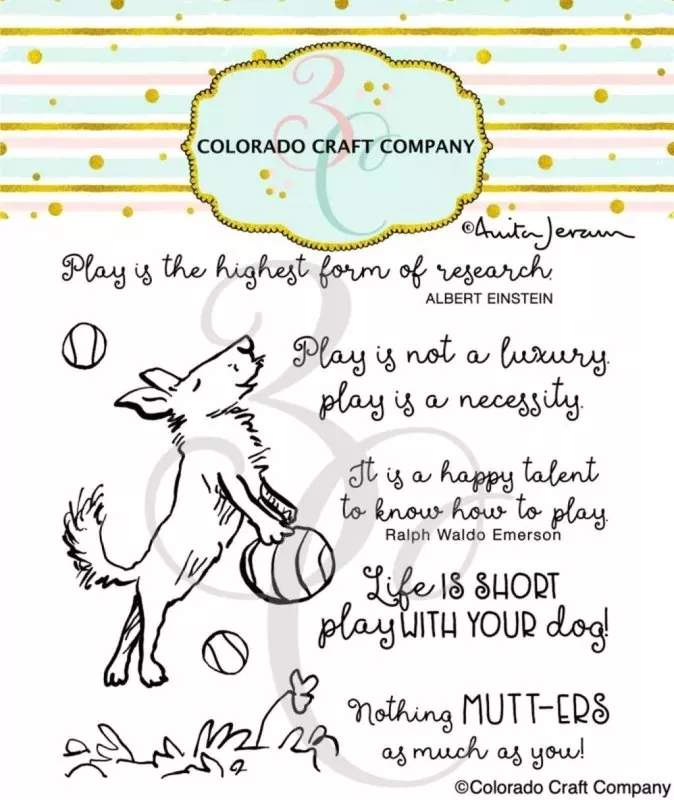 3C
COLORADO CRAFT COMPANY
©Anita Jeram
Play is the highest form of research.
ALBERT EINSTEIN
Play is not a luxury.
play is a necessity.
It is a happy talent
to know how to play.
Ralph Waldo Emerson
Life IS SHORT
play WITH YOUR dog!
Nothing MUTT-ERS
as much as you!
©Colorado Craft Company